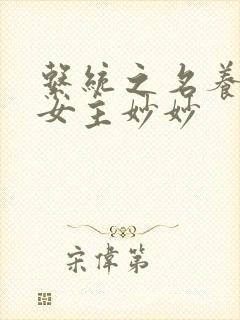 繫統之名養
女主妙妙
宋偉第